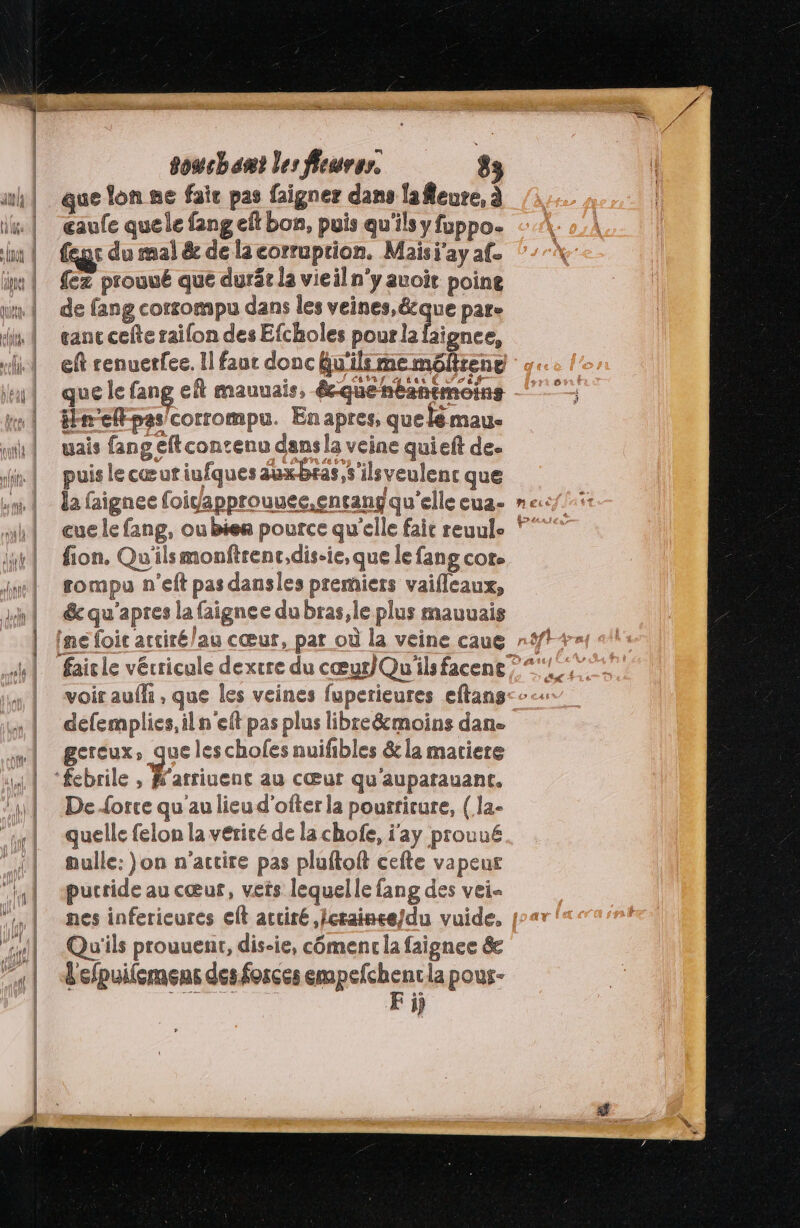 touchant les fieures. 83
que lon ne fait pas saigner dans la fieure, à
cause que le sang est bon, puis qu'ils y suppo-
sent du mal & de la corruption. Mais i'ay as-
sez prouué que durāt la vie il n'y auoit point
de sang corrompu dans les veines, &que par-
tant ceste raison des Escholes pour la saignee,
est renuersee. Il faut donc qu'ils me mōstrent
que le sang est mauuais, &que neantmoins
il n'est pas corrompu. En apres, que le mau-
uais sang est contenu dans la veine qui est de-
puis le cœur iusques aux bras, s'ils veulent que
la saignee soit approuuee, entant qu'elle eua-
cue le sang, ou bien pource qu'elle fait reuul-
sion. Qu'ils monstrent, dis-ie, que le sang cor-
rompu n'est pas dans les premiers vaisseaux,
& qu'apres la saignee du bras, le plus mauuais
ne soit attiré au cœur, par où la veine caue
faict le vētricule dextre du cœur) Qu'ils facent
voir aussi, que les veines superieures estans
desemplies, il n'est pas plus libre & moins dan-
gereux, que les choses nuisibles & la matiere
febrile, n'arriuent au cœur qu'auparauant.
De sorte qu'au lieu d'oster la pourriture, (la-
quelle selon la verité de la chose, i'ay prouué
nulle:) on n'attire pas plustost ceste vapeur
putride au cœur, vers lequel le sang des vei-
nes inferieures est attiré, /crainte/ du vuide.
Qu'ils prouuent, dis-ie, cōment la saignee &
l'espuisement des forces empeschent la pour-
F ij